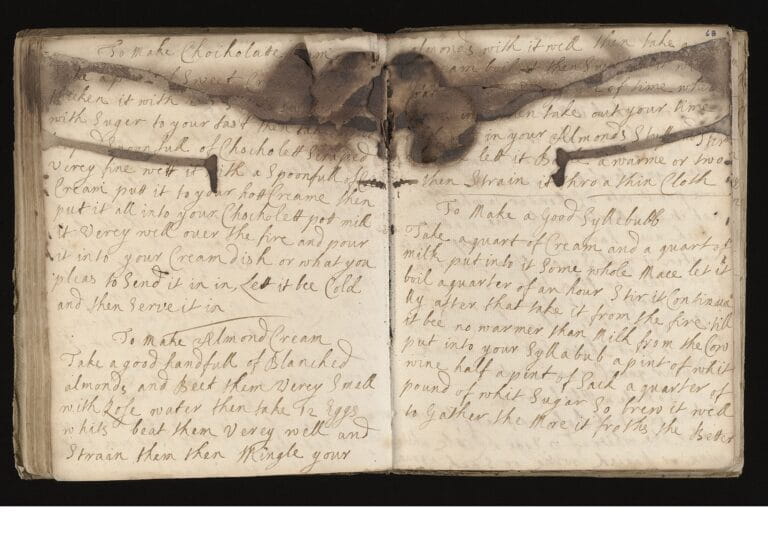 To Make Chocholatt
Sweet
thicken it with
with Suger to your tast then
Spoonfull of Chocholett Scraped
Verey fine wett it with a Spoonfull of
Cream putt it to your hott Creame then
put it all into your Chocholett pott mill
it Verey well over the fire and pour
it into your Cream dish or what you
pleas to Send it in in, Lett it bee Cold
and then Serve it in
To Make Almond Cream
Take a good handfull of Blanched
almonds and Beet them Verey Small
with Rose water then take 12 Eggs
whits beat them Verey well and
Straan them then Mingle your
68
almonds with it well then take
of time
then take out your
in your Almonds
lett it a warme or two
then Strain it thro a thin Cloth
To Make a Good Syllebubb
Take a quart of Cream and a quart of
milk put into it Some whole Mace let it
boil a quarter of an hour Stir it Continua
lly after that take it from the fire till
it bee no warmer than Milk from the Cow
put into your Syllabub a pint of whit
wine half a pint of Sack a quarter of
pound of whit Sugar So brew it well
to Gather the More it froths the better